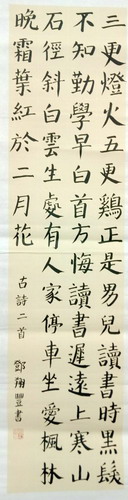 三更燈火五更鷄正是男兒讀書時黑髮
不知勤學早白首方悔讀書遲遠上寒山
石徑斜白雲生處有人家停車坐愛楓林
晚霜葉紅於二月花
古詩二首
鄧翔豐書